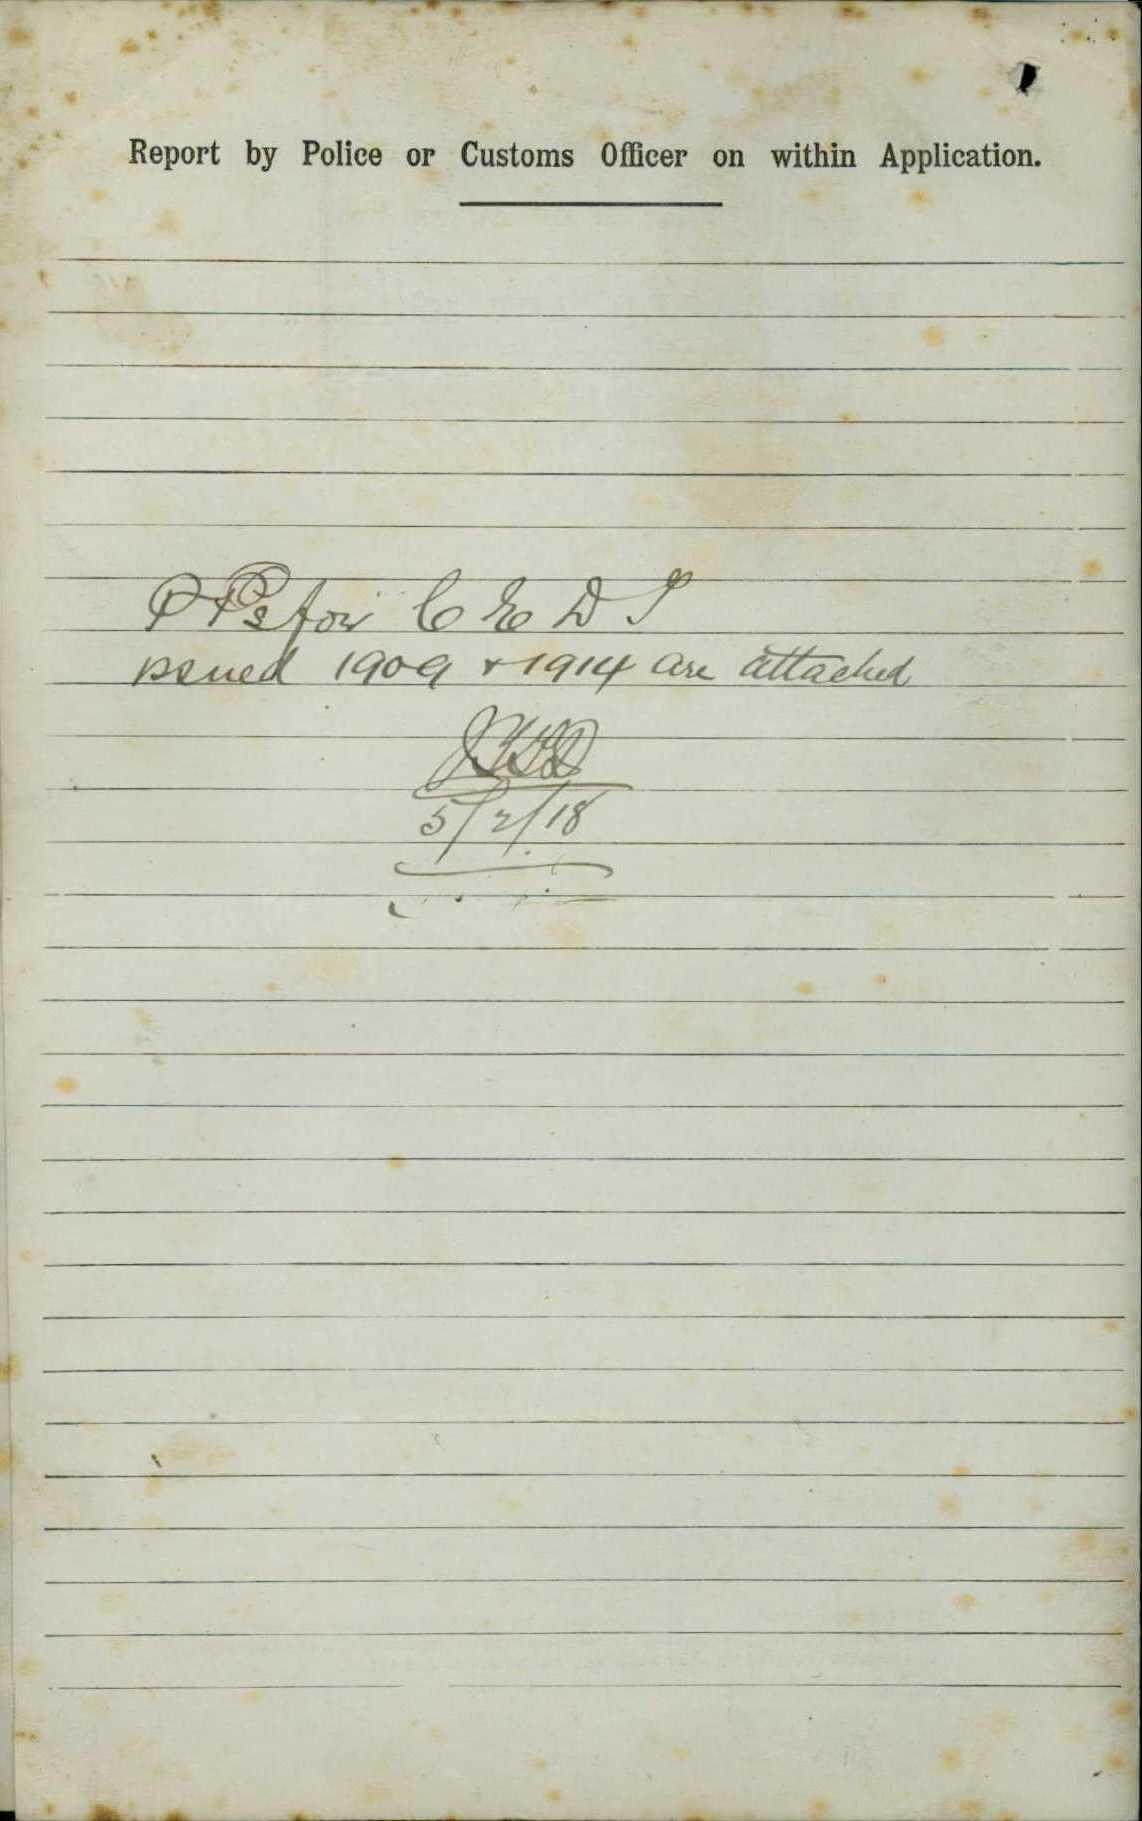 Report by Police or Customs Officer on within Application.
P Ps for C E D T
issued 1909 & 1914 are attached
5/2/18